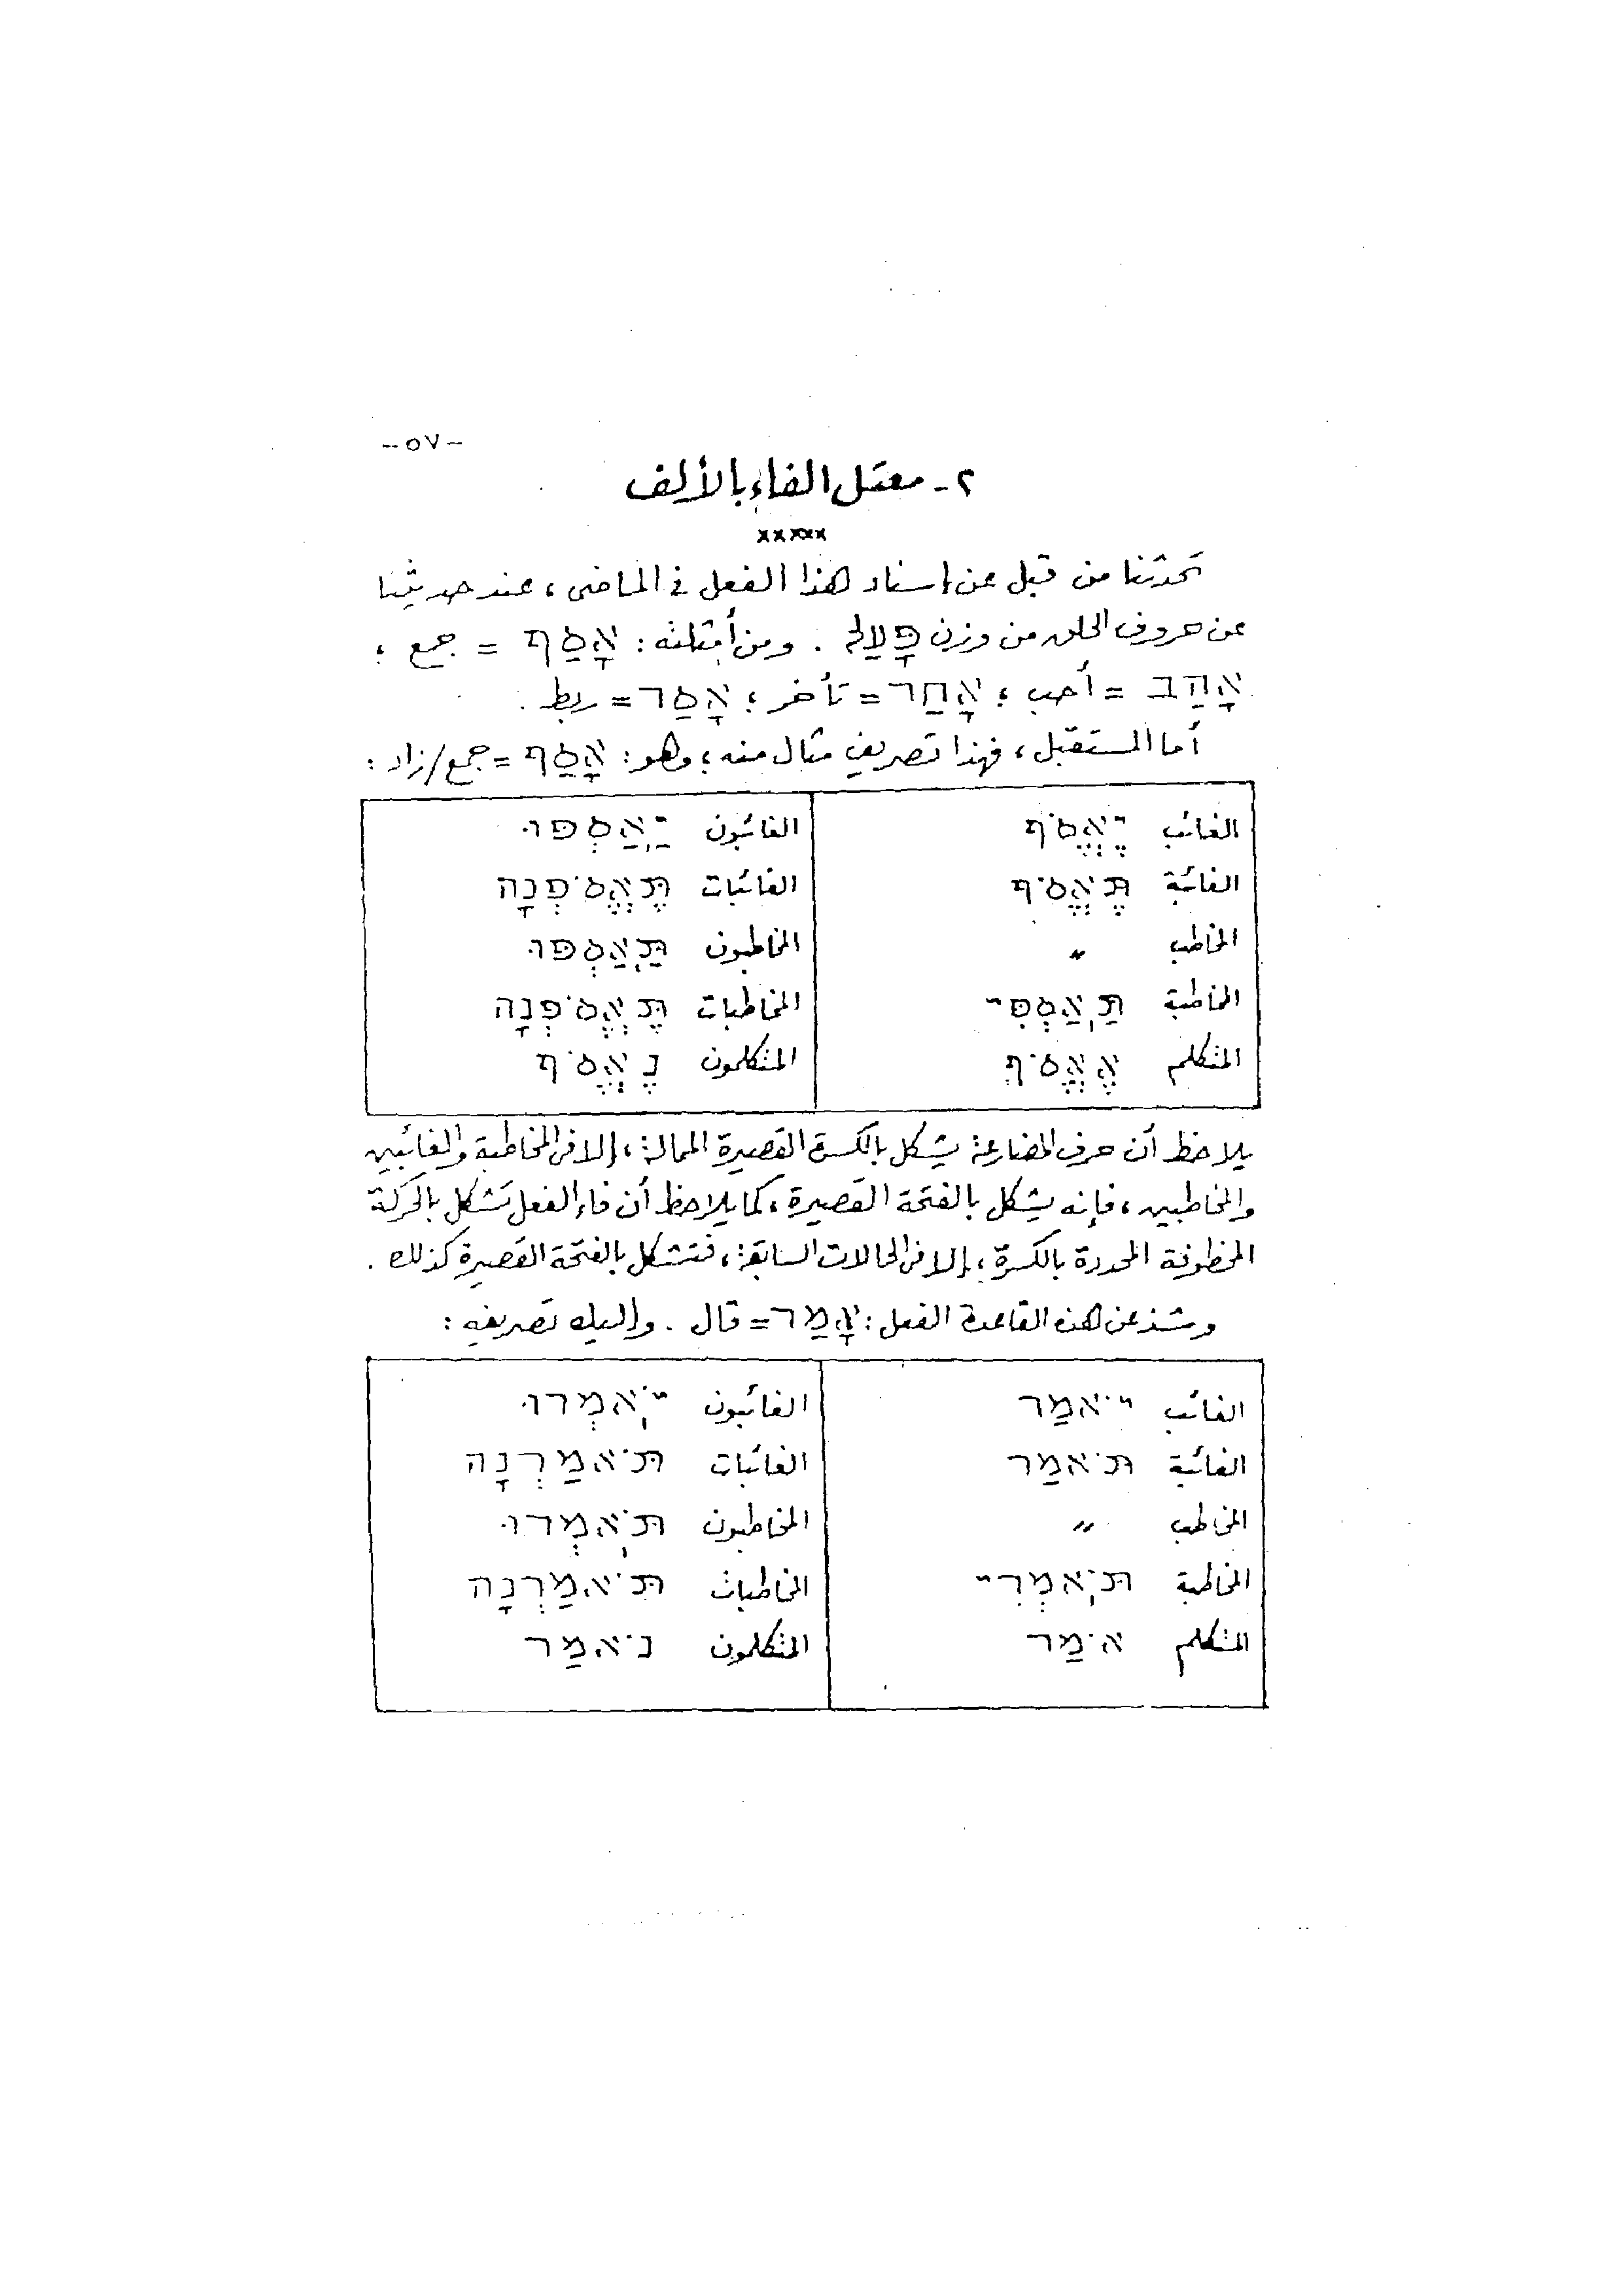 -٥٧-
٢- معتل الفاء بالألف
×××××
تحدثنا من قبل عن إسناد هذا الفعل فى الماضى ، عند حديثنا
عن حروف الحلق من وزن פָּעַל . ومن أمثلته : אָסַף = جمع ؛
אָהַב = أحب ؛ אָחַר = تأخر ؛ אָסַר = ربط .
أما المستقبل ، فهذا تصريف مثال منه ؛ وهو : אָסַף = جمع/زاد :
الغائب יֶאֱסֹף الغائبون יַאַסְפוּ
الغائبة תֶּאֱסֹף الغائبات תֶּאֱסֹפְנָה
المخاطب " المخاطبون תַּאַסְפוּ
المخاطبة תַּאַסְפִי المخاطبات תֶּאֱסֹפְנָה
المتكلم אֶאֱסֹף المتكلمون נֶאֱסֹף
يلاحظ أن حرف المضارعة يشكل بالكسرة القصيرة الممالة ، إلا فى المخاطبة والغائبين
والمخاطبين ، فإنه يشكل بالفتحة القصيرة ، كما يلاحظ أن فاء الفعل تشكل بالحركة
المخطوفة المحددة بالكسرة ، إلا فى الحالات السابقة ، فتشكل بالفتحة القصيرة كذلك .
وشذ عن هذه القاعدة الفعل : אָמַר = قال . وإليك تصريفه :
الغائب יֹאמַר الغائبون יֹאמְרוּ
الغائبة תֹּאמַר الغائبات תֹּאמַרְנָה
المخاطب " المخاطبون תֹּאמְרוּ
المخاطبة תֹּאמְרִי المخاطبات תֹּאמַרְנָה
المتكلم אֹמַר المتكلمون נֹאמַר